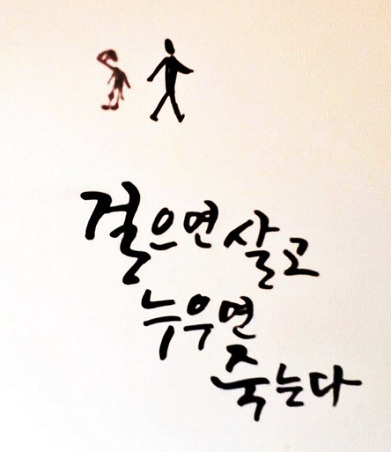 걸으면 살고
누우면
죽는다